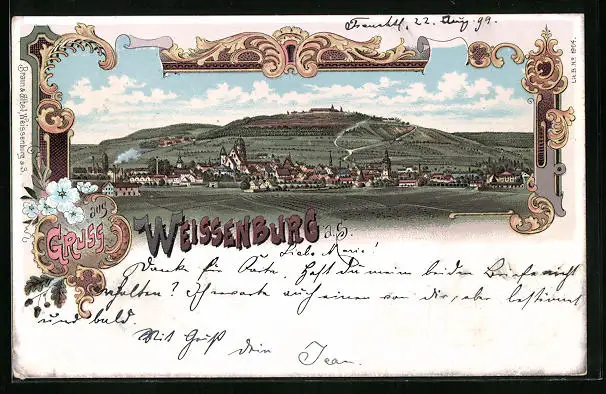 Treuchtl. 22. Aug. 99.
Braun & Elbel, Weissenburg a. S.
Lit. B. No. 1864.
GRUSS aus
WEISSENBURG a. S.
Liebe Marie!
Danke für Karte, Hast Du meine beiden Briefe nicht
erhalten? Ich erwarte auch einen von dir, aber bestimmt
und bald.
Mit Gruß
dein Jean.